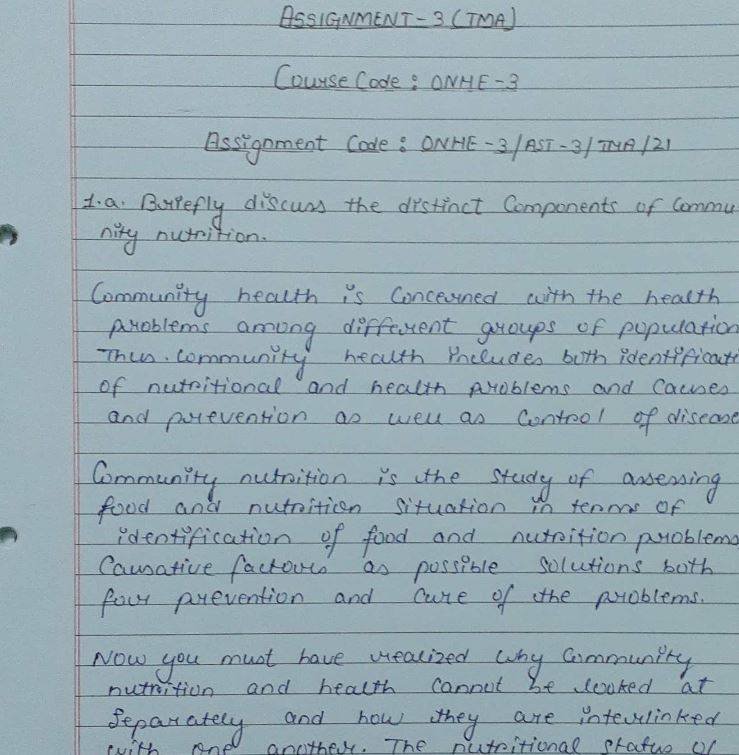 ASSIGNMENT-3 (TMA)
Course Code : ONHE-3
Assignment Code : ONHE-3/AST-3/TMA/21
1.a. Briefly discuss the distinct Components of Commu
nity nutrition.
Community health is Concerned with the health
problems among different groups of population
Thus. Community health includes both identificati
of nutritional and health problems and Causes
and prevention as well as Control of disease
Community nutrition is the study of assessing
food and nutrition situation in terms of
identification of food and nutrition problems
Causative factors as possible solutions both
for prevention and Cure of the problems.
Now you must have realized why Community
nutrition and health Cannot be looked at
Separately and how they are interlinked
with one another. The nutritional status of